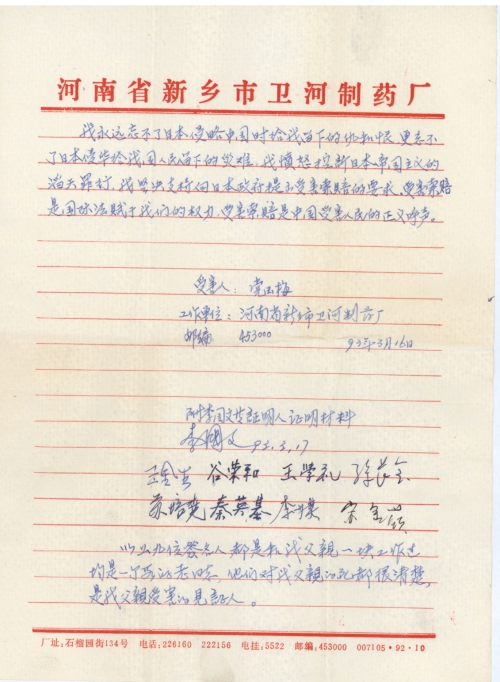 河南省新乡市卫河制药厂
我永远忘不了日本侵略中国时给我留下的仇和恨,更忘不
了日本侵华给我国人民留下的灾难,我愤怒控诉日本军国主义的
滔天罪行,我坚决支持向日本政府提出受害索赔的要求,受害索赔
是国际法赋于我们的权力,受害索赔是中国受害人民的正义呼声。
受害人:党玉梅
工作单位:河南省新乡市卫河制药厂
邮编 453000 93年3月16日
附李国文等証明人证明材料
李國文 93.3.17
谷荣和 王学礼
苏培尧 秦英基
以上九位签名人都是和我父親一块工作过
均是一个 的老同志,他们对我父親的死都很清楚,
是我父親受害的見証人。
厂址:石榴园街134号 电话:226160 222156 电挂:5522 邮编:453000 007105·92·10